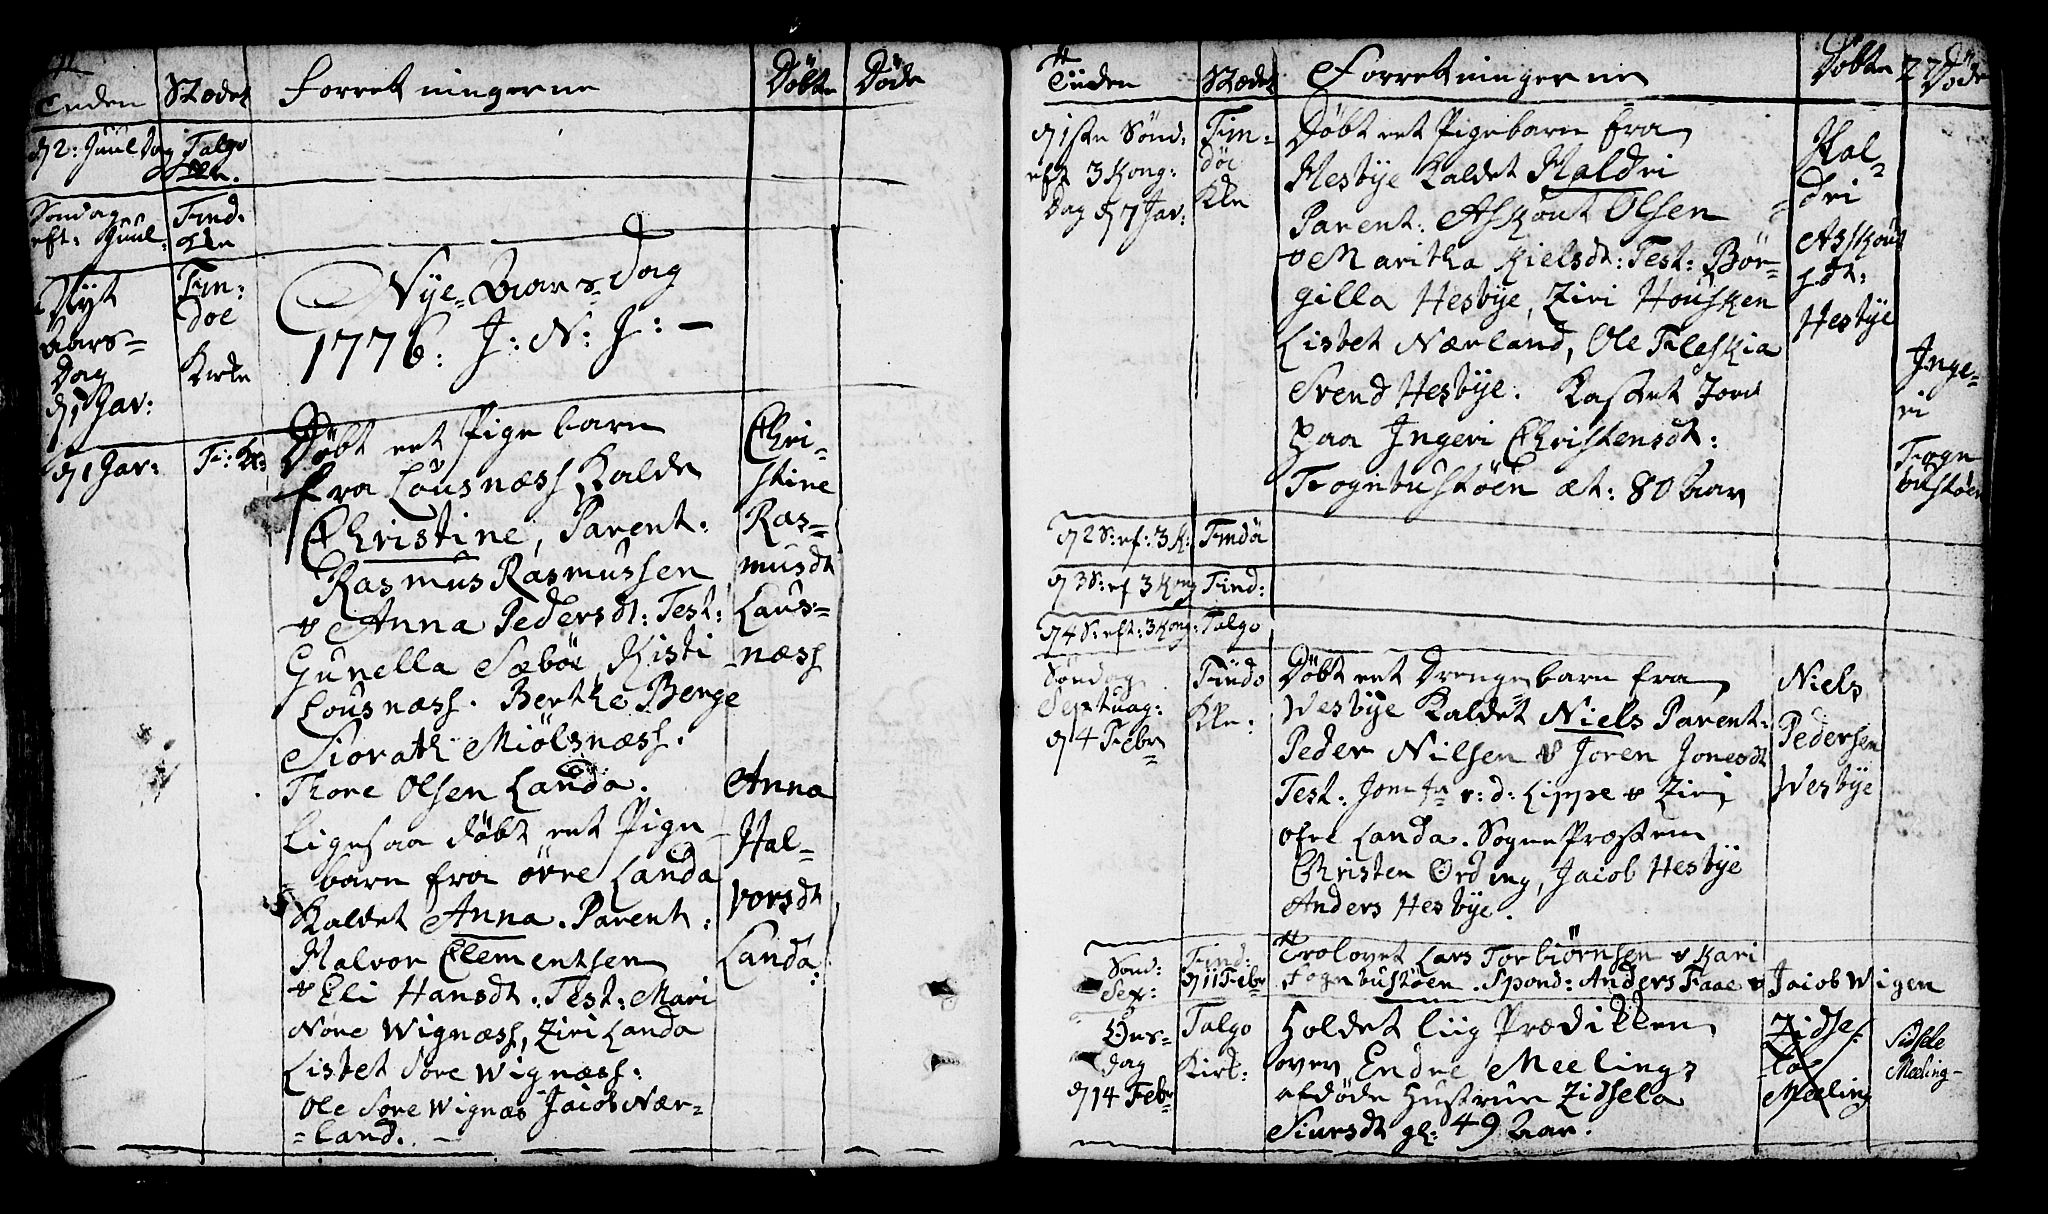 Tiiden Stædet Forretningerne Døbte Døde
d 2: Juul Dag Talgø Kke.
Søndag eft: Juul: Find: Kke
Nÿt Aars= Dag d 1 Jar: Fin: doe Kirke
Nÿe=Aars=dag
1776: J: N: J: —
d 1 Jar: Fi: K:
Døbt eet Pige barn
fra Lousnæss Kalde
Christine, Parent:
Rasmus Rasmussen
& Anna Pedersdt: Test:
Gunella Sæbøe, Kisti
Lousnæss. Berthe Berge
Siorath Miølsnæss.
Thore Olsen Landa.
Chri=
stine
Ras=
musdt
Laus=
næss
Ligesaa døbt eet Pige
= barn fra øvre Landa
Kaldet Anna. Parent:
Halvor Clementsen
& Eli Hansdt: Test: Mari
Nøre Wignæss, Ziri Landa
Lisbet Søre Wignæss:
Ole Søre Wignæs Jacob Nær=
=land. —
Anna
Hal=
vorsdt
Landa:
Tiiden Stædet Forretningerne Døbte 27 Døde
d 1ste Sønd:
eft 3 Kong:
Dag d 7 Jar:
Fin=
döe
Kke
Döbt eet Pigebarn fra
Hesbÿe Kaldet Haldri
Parent: Askout Olsen
& Maritha Kielsdt: Test: Bør=
gilla Hesbÿe, Ziri Housken
Lisbet Nærland, Ole Fileskia
Svend Hesbÿe. Kastet Jord
paa Ingeri Christensdt:
Fognebustöen æt: 80 Aar
Hal=
dri
Askout
sdt:
Hesbÿe
Inge=
ri
Fogn
bustøen
d 2 S: ef: 3 K: Findö
d 3 S: ef 3 Kong Find:
d 4 S: eft: 3 Kong: Talgo
Søndag
Septuag:
d 4 Febr
Findø
Kke:
Döbt eet Drenge barn fra
Wesbÿe Kaldet Niels Parent:
Peder Nilsen & Joren Jonesdt
Test: Jomfr v: d: Lippe & Ziri
øfre Landa. Sogne Præsten
Christen Ording, Jacob Hesbÿe
Anders Hesbÿe.
Niels
Pedersen
Wesbÿe
Sönd:
Sex:
Find:
d 11 Febr
Trolovet Lars Torbiörnsen & Kari
Fognbustöen. Spond: Anders Faae & Jacob Wigen
Ons=
dag
d 14 Febr
Talgo
Kirk:
Holdet Liig Prædikken
over Endre Meelings
afdöde Hustrue Zidsela
Siursdt gl: 49 Aar.
Zidse=
la
Meeling
Sidsele
Meeling